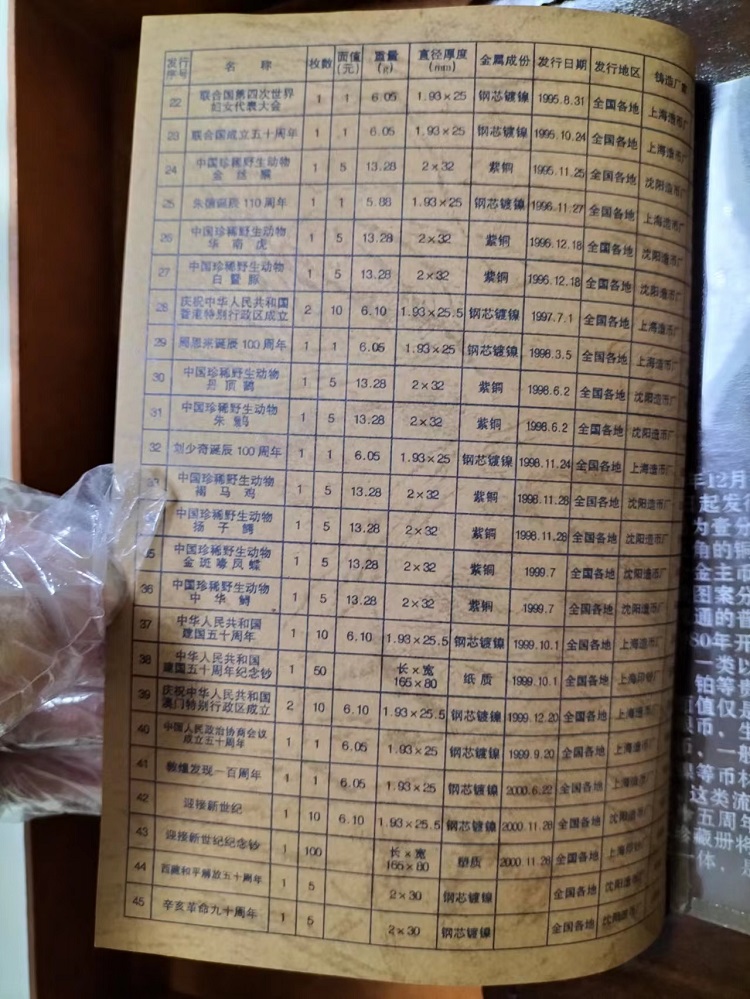 发行序号 名称 枚数 面值(元) 重量(g) 直径厚度(mm) 金属成份 发行日期 发行地区 铸造厂家
22 联合国第四次世界妇女代表大会 1 1 6.05 1.93×25 钢芯镀镍 1995.8.31 全国各地 上海造币厂
23 联合国成立五十周年 1 1 6.05 1.93×25 钢芯镀镍 1995.10.24 全国各地 上海造币厂
24 中国珍稀野生动物金丝猴 1 5 13.28 2×32 紫铜 1995.11.25 全国各地 沈阳造币厂
25 朱德诞辰110周年 1 1 5.88 1.93×25 钢芯镀镍 1996.11.27 全国各地 上海造币厂
26 中国珍稀野生动物华南虎 1 5 13.28 2×32 紫铜 1996.12.18 全国各地 沈阳造币厂
27 中国珍稀野生动物白暨豚 1 5 13.28 2×32 紫铜 1996.12.18 全国各地 沈阳造币厂
28 庆祝中华人民共和国香港特别行政区成立 2 10 6.10 1.93×25.5 钢芯镀镍 1997.7.1 全国各地 上海造币厂
29 周恩来诞辰100周年 1 1 6.05 1.93×25 钢芯镀镍 1998.3.5 全国各地 上海造币厂
30 中国珍稀野生动物丹顶鹤 1 5 13.28 2×32 紫铜 1998.6.2 全国各地 沈阳造币厂
31 中国珍稀野生动物朱鹮 1 5 13.28 2×32 紫铜 1998.6.2 全国各地 沈阳造币厂
32 刘少奇诞辰100周年 1 1 6.05 1.93×25 钢芯镀镍 1998.11.24 全国各地 上海造币厂
33 中国珍稀野生动物褐马鸡 1 5 13.28 2×32 紫铜 1998.11.28 全国各地 沈阳造币厂
中国珍稀野生动物扬子鳄 1 5 13.28 2×32 紫铜 1998.11.28 全国各地 沈阳造币厂
35 中国珍稀野生动物金斑喙凤蝶 1 5 13.28 2×32 紫铜 1999.7 全国各地 沈阳造币厂
36 中国珍稀野生动物中华鲟 1 5 13.28 2×32 紫铜 1999.7 全国各地 沈阳造币厂
37 中华人民共和国建国五十周年 1 10 6.10 1.93×25.5 钢芯镀镍 1999.10.1 全国各地 上海造币
38 中华人民共和国建国五十周年纪念钞 1 50 长×宽165×80 纸质 1999.10.1 全国各地 上海印钞
39 庆祝中华人民共和国澳门特别行政区成立 2 10 6.10 1.93×25.5 钢芯镀镍 1999.12.20 全国各地 上海造币
40 中国人民政治协商会议成立五十周年 1 1 6.05 1.93×25 钢芯镀镍 1999.9.20 全国各地 上海造币
41 敦煌发现一百周年 1 1 6.05 1.93×25 钢芯镀镍 2000.6.22 全国各地 上海造币
42 迎接新世纪 1 10 6.10 1.93×25.5 钢芯镀镍 2000.11.28 全国各地 沈阳造币
43 迎接新世纪纪念钞 1 100 长×宽165×80 塑质 2000.11.28 全国各地 上海印钞
44 西藏和平解放五十周年 1 5 2×30 钢芯镀镍 全国各地 沈阳造币
45 辛亥革命九十周年 1 5 2×30 钢芯镀镍 全国各地 沈阳造币
年12月
起发
为壹分
角的
金主币
图案分
通的
80年开
一类以
铂等
值仅是
币，生
币，一般
等币
这类流
五周年
藏册将
一体，是